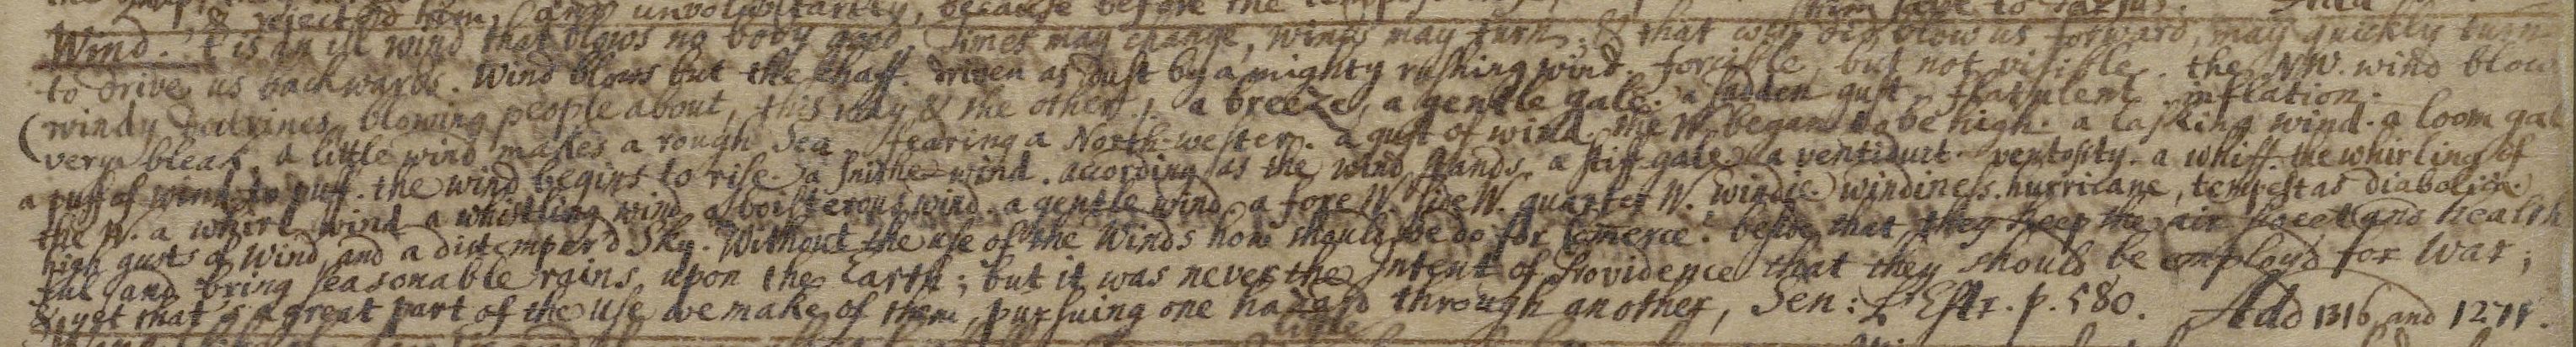 & rejected him, and unvoluntarily, because before the
Wind. 'T is an ill wind that blows no body good. Times may change, winds may turn; & that wch did blow us forward, may quickly turn
to drive us backwards. Wind blows but the chaff. driven as dust by a mighty rushing wind. forcible, but not visible. the NW. wind blow
(windy doctrines, blowing people about, this way & the other). a breeze, a gentle gale. a sudden gust. flatulent inflation.
very bleak, a little wind makes a rough Sea. fearing a North-wester. a gust of wind. the W. began to be high. a lasking wind. a loom gal
a puff of wind, to puff. the wind begins to rise. a snithe wind. according as the wind stands. a stiff gale. a ventiduct. ventosity. a whiff. the whirling of
the W. a whirl wind. a whistling wind. a boisterous wind. a gentle wind. a fore W. side W. quarter W. windie. windiness. hurricane, tempestas diabolica.
high gusts of Wind, and a distemper'd Sky. Without the use of the Winds how should we do for comerce. beside that, they keep the air sweet and health
ful and bring seasonable rains upon the Earth; but it was never the Intent of Providence that they should be employ'd for War;
& yet that's a great part of the use we make of them, pursuing one hazard through another, Sen: L'Estr. p. 580. Add 1316, and 1271.
little